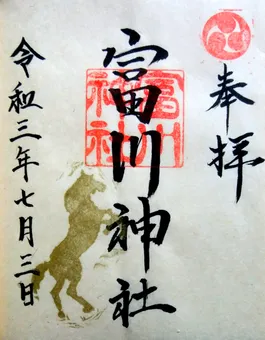 奉拝
富川神社
富川
神社
令和三年七月三日